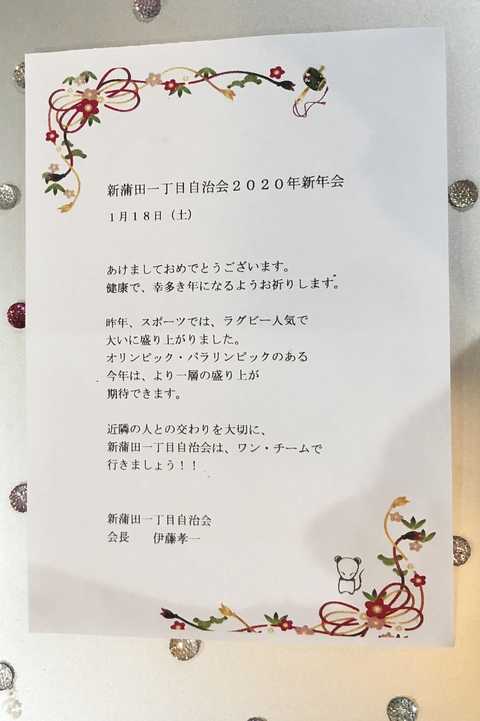 新蒲田一丁目自治会２０２０年新年会
１月１８日（土）
あけましておめでとうございます。
健康で、幸多き年になるようお祈りします。
昨年、スポーツでは、ラグビー人気で
大いに盛り上がりました。
オリンピック・パラリンピックのある
今年は、より一層の盛り上が
期待できます。
近隣の人との交わりを大切に、
新蒲田一丁目自治会は、ワン・チームで
行きましょう！！
新蒲田一丁目自治会
会長　　伊藤孝一